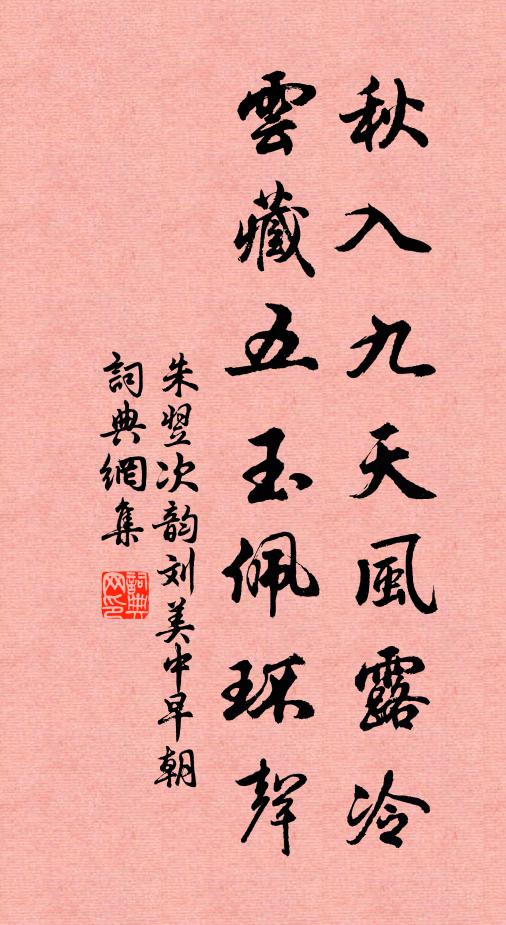 秋入九天風露冷
雲藏五玉佩环聲
朱翌次韵刘美中早朝
詞典網集
詞典网印